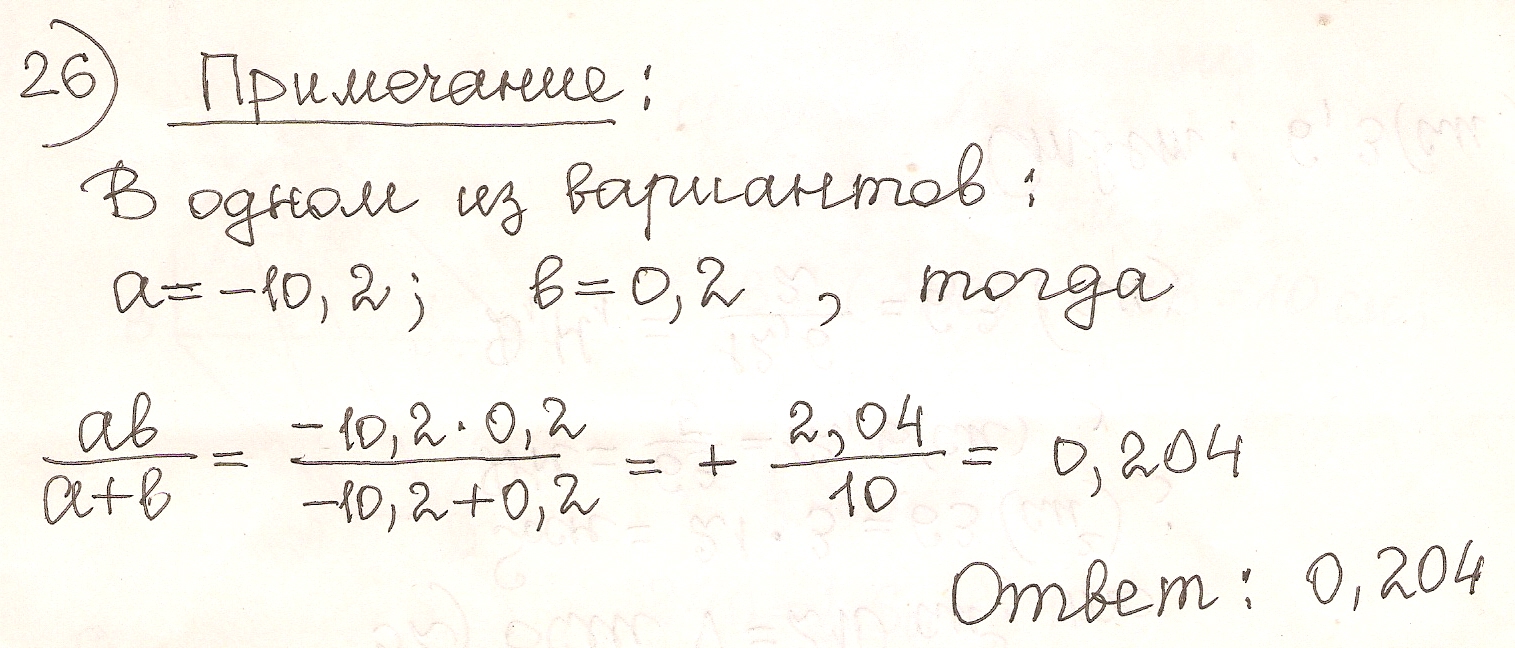 26) Примечание:
В одном из вариантов:
a = -10,2; в = 0,2, тогда
aв/(a+в) = (-10,2 · 0,2)/(-10,2+0,2) = + 2,04/10 = 0,204
Ответ: 0,204